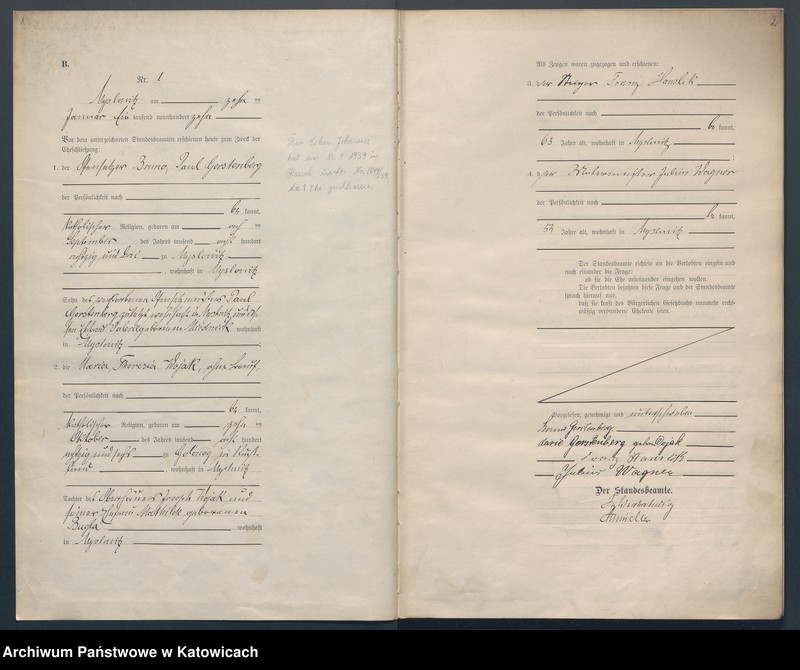 B.
Nr. 1
Myslowitz am zehn ten
Januar Ein tausend neunhundert zehn
Vor dem unterzeichneten Standesbeamten erschienen heute zum Zweck der
Eheschließung:
1. der Ofensetzer Bruno, Paul Gerstenberg
der Persönlichkeit nach
be kannt,
katholischer Religion, geboren am acht ten
September des Jahres tausend acht hundert
achtzig und drei zu Myslowitz
, wohnhaft in Myslowitz
Sohn des verstorbenen Paul
Gerstenberg, zuletzt wohnhaft in Myslowitz und
wohnhaft
in Myslowitz ;
2. die Maria, Theresia Wojak, ohne Beruf
der Persönlichkeit nach
be kannt,
katholischer Religion, geboren am zehn ten
Oktober des Jahres tausend acht hundert
achtzig und sechs zu Golonog in Russ-
land , wohnhaft in Myslowitz
Tochter des Oberhäuers Joseph Wojak und
seiner Ehefrau Mathilde geborenen
Bugla wohnhaft
in Myslowitz
1939 in
2
Als Zeugen waren zugezogen und erschienen:
3. der Steiger Franz Hanslik
der Persönlichkeit nach
be kannt,
63 Jahre alt, wohnhaft in Myslowitz
;
4. der Julius Wagner
der Persönlichkeit nach
be kannt,
53 Jahre alt, wohnhaft in Myslowitz
Der Standesbeamte richtete an die Verlobten einzeln und
nach einander die Frage:
ob sie die Ehe miteinander eingehen wollen.
Die Verlobten bejahten diese Frage und der Standesbeamte
sprach hierauf aus,
daß sie kraft des Bürgerlichen Gesetzbuchs nunmehr recht-
mäßig verbundene Eheleute seien.
Vorgelesen, genehmigt und unterschrieben
Bruno Gerstenberg
Marie Gerstenberg geboren Wojak
Franz Hanslik
Julius Wagner
Der Standesbeamte.
In Vertretung
Archiwum Państwowe w Katowicach